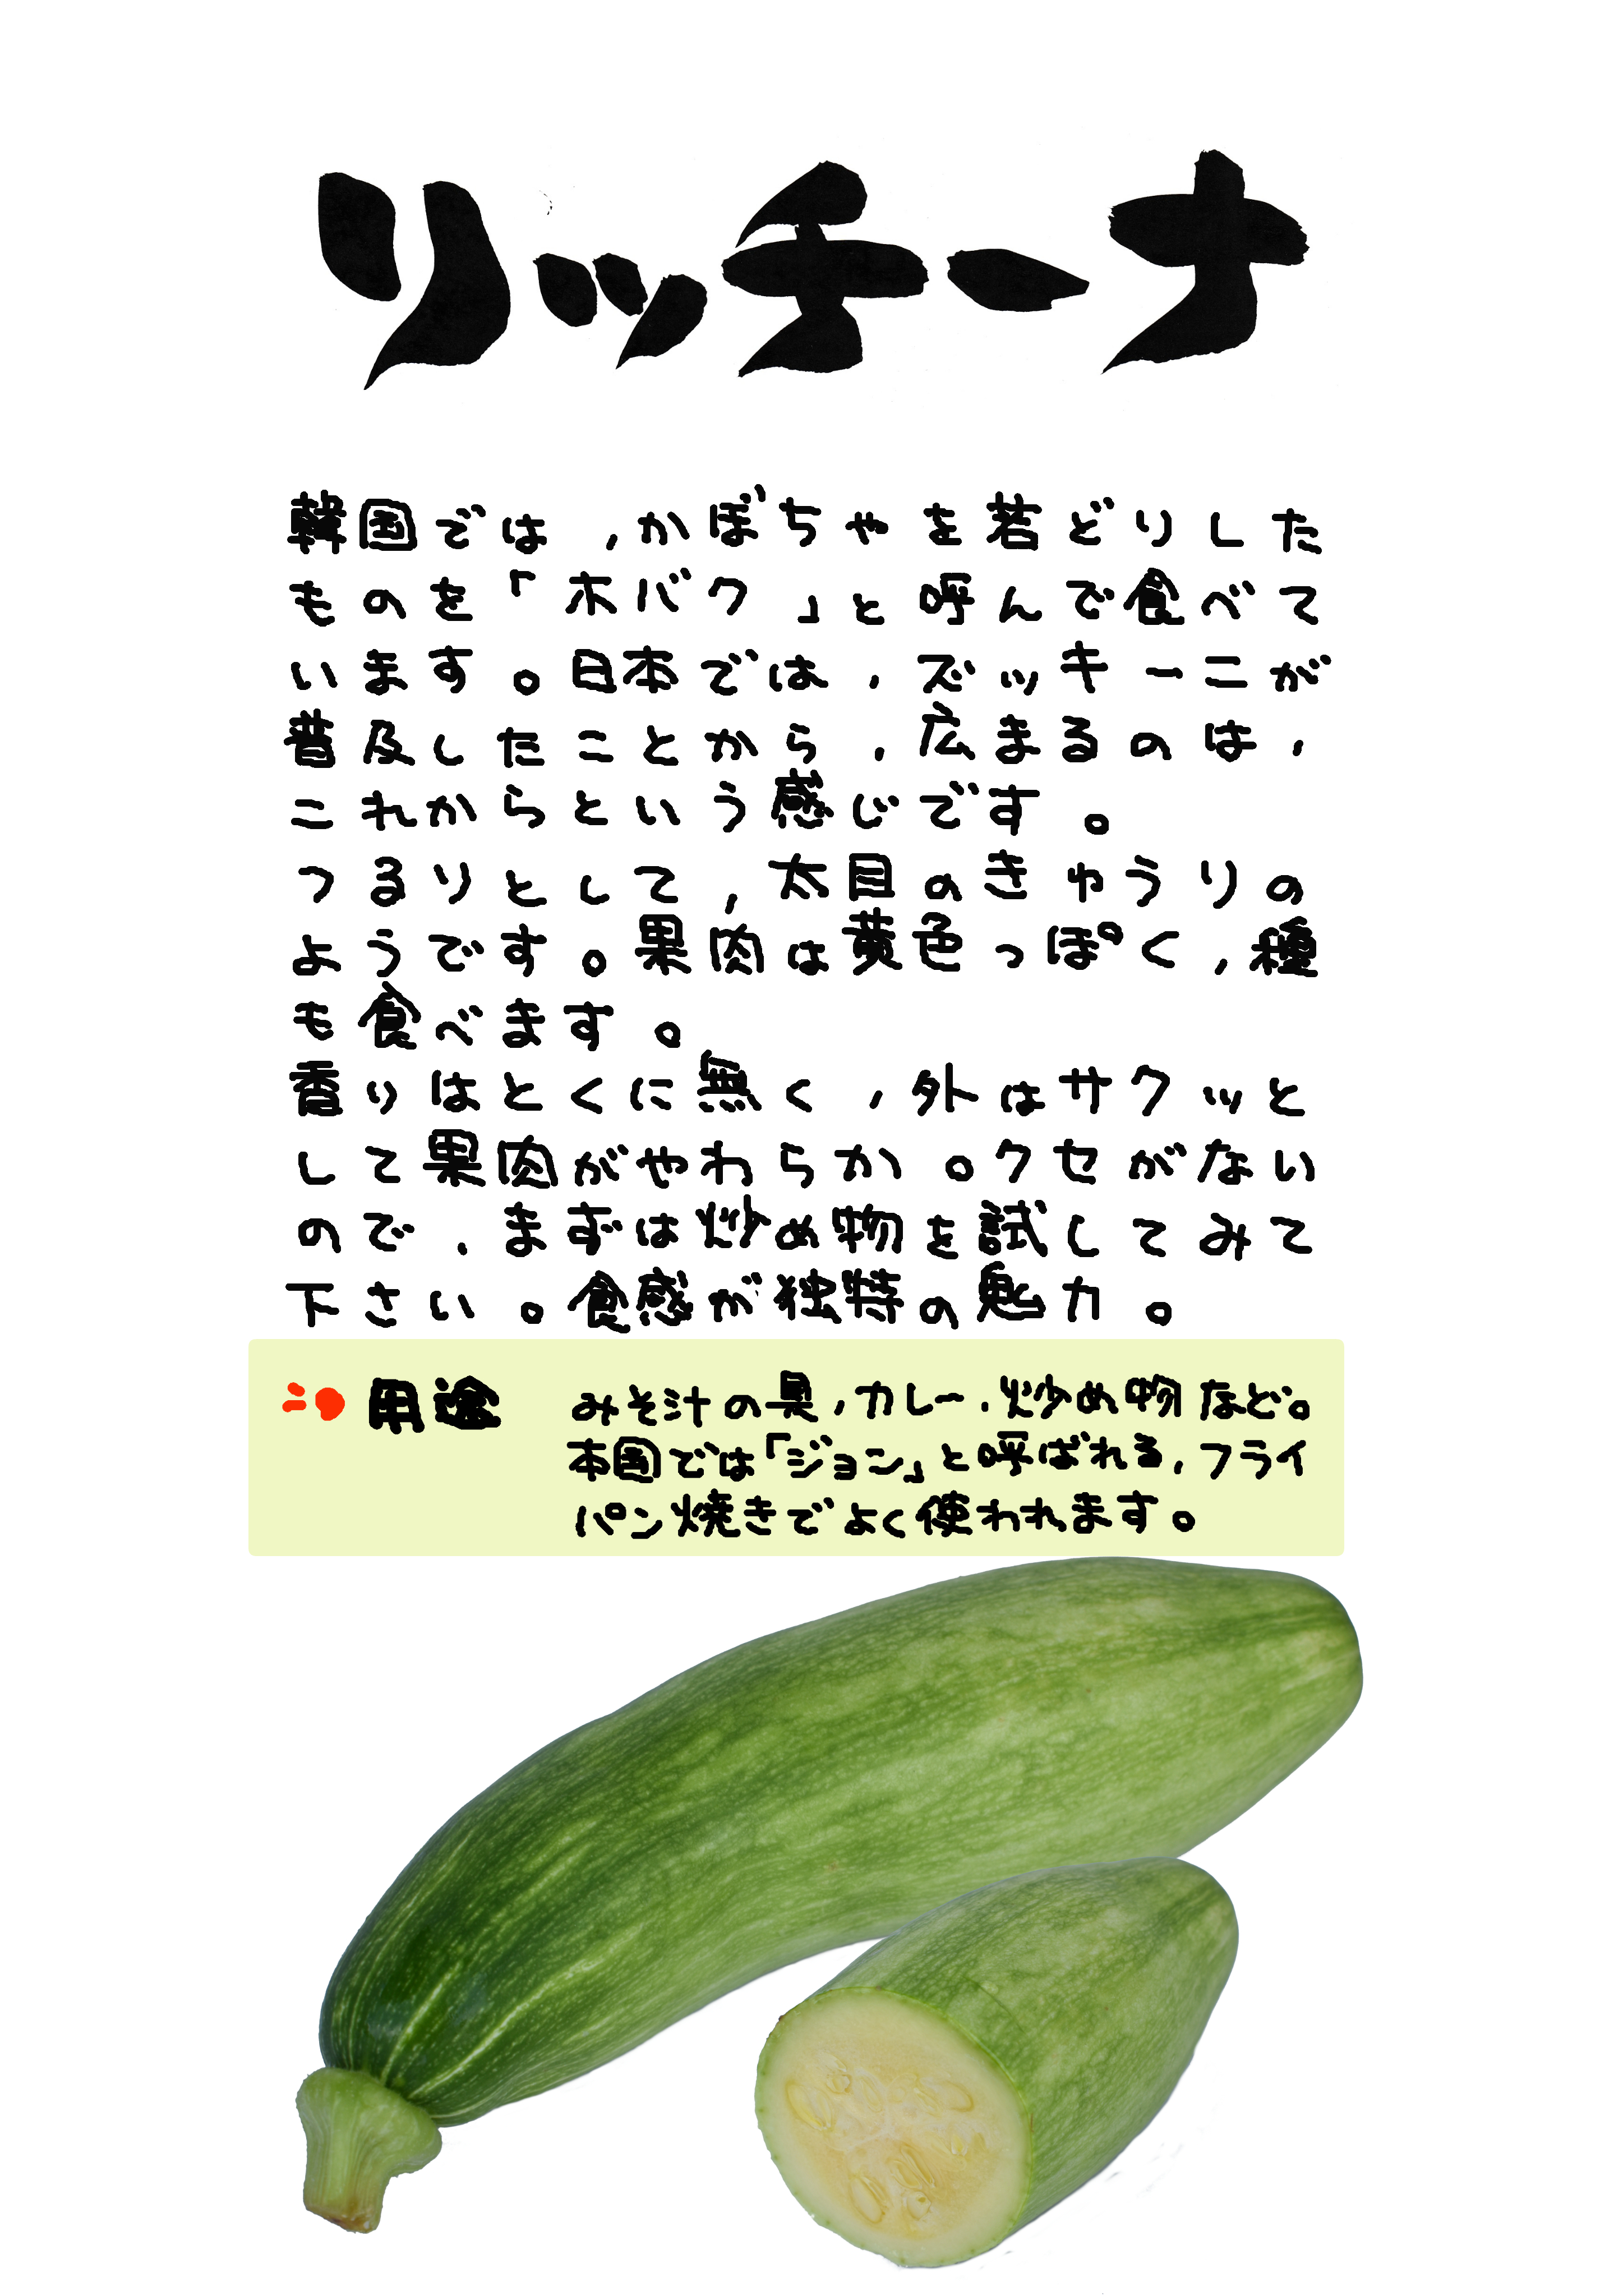 リッチーナ
韓国では,かぼちゃを若どりした
ものを「ホバク」と呼んで食べて
います。日本では,ズッキーニが
普及したことから,広まるのは,
これからという感じです。
つるりとして,太目のきゅうりの
ようです。果肉は黄色っぽく,種
も食べます。
香りはとくに無く,外はサクッと
して果肉がやわらか。クセがない
ので,まずは炒め物を試してみて
下さい。食感が独特の魅力。
用途 みそ汁の具,カレー,炒め物など。
本国では「ジョン」と呼ばれる,フライ
パン焼きでよく使われます。